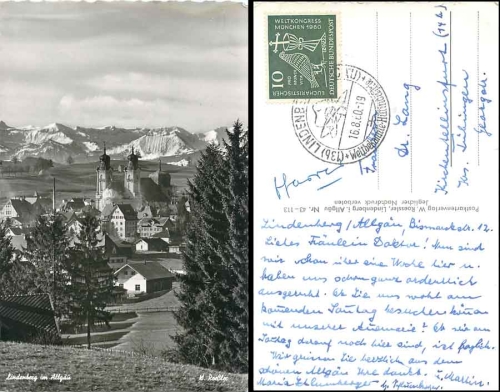 Lindenberg im Allgäu
W. Roessler
EUCHARISTISCHER
WELTKONGRESS
MÜNCHEN 1960
PRO
MUNDI
VITA
10
DEUTSCHE BUNDESPOST
(13b) LINDENBERG
16.8.60-19
Postkartenverlag W. Roessler, Lindenberg i. Allgäu Nr. 43 - 113
Jeglicher Nachdruck verboten
Fräulein
Dr. Lang
Kirchentellinsfurt (14b)
Krs. Tübingen
Lindenberg/Allgäu, Bismarckstr. 12.
Liebes Fräulein Doktor! Nun sind
wir schon über eine Woche hier u.
haben uns schon ganz ordentlich
ausgeruht. Ob Sie uns wohl am
kommenden Samstag besuchen können
mit unserer Annemarie? Ob wir am
Samstag darauf noch hier sind, ist fraglich.
Wir grüssen Sie herzlich aus dem
schönen Allgäu
Maria